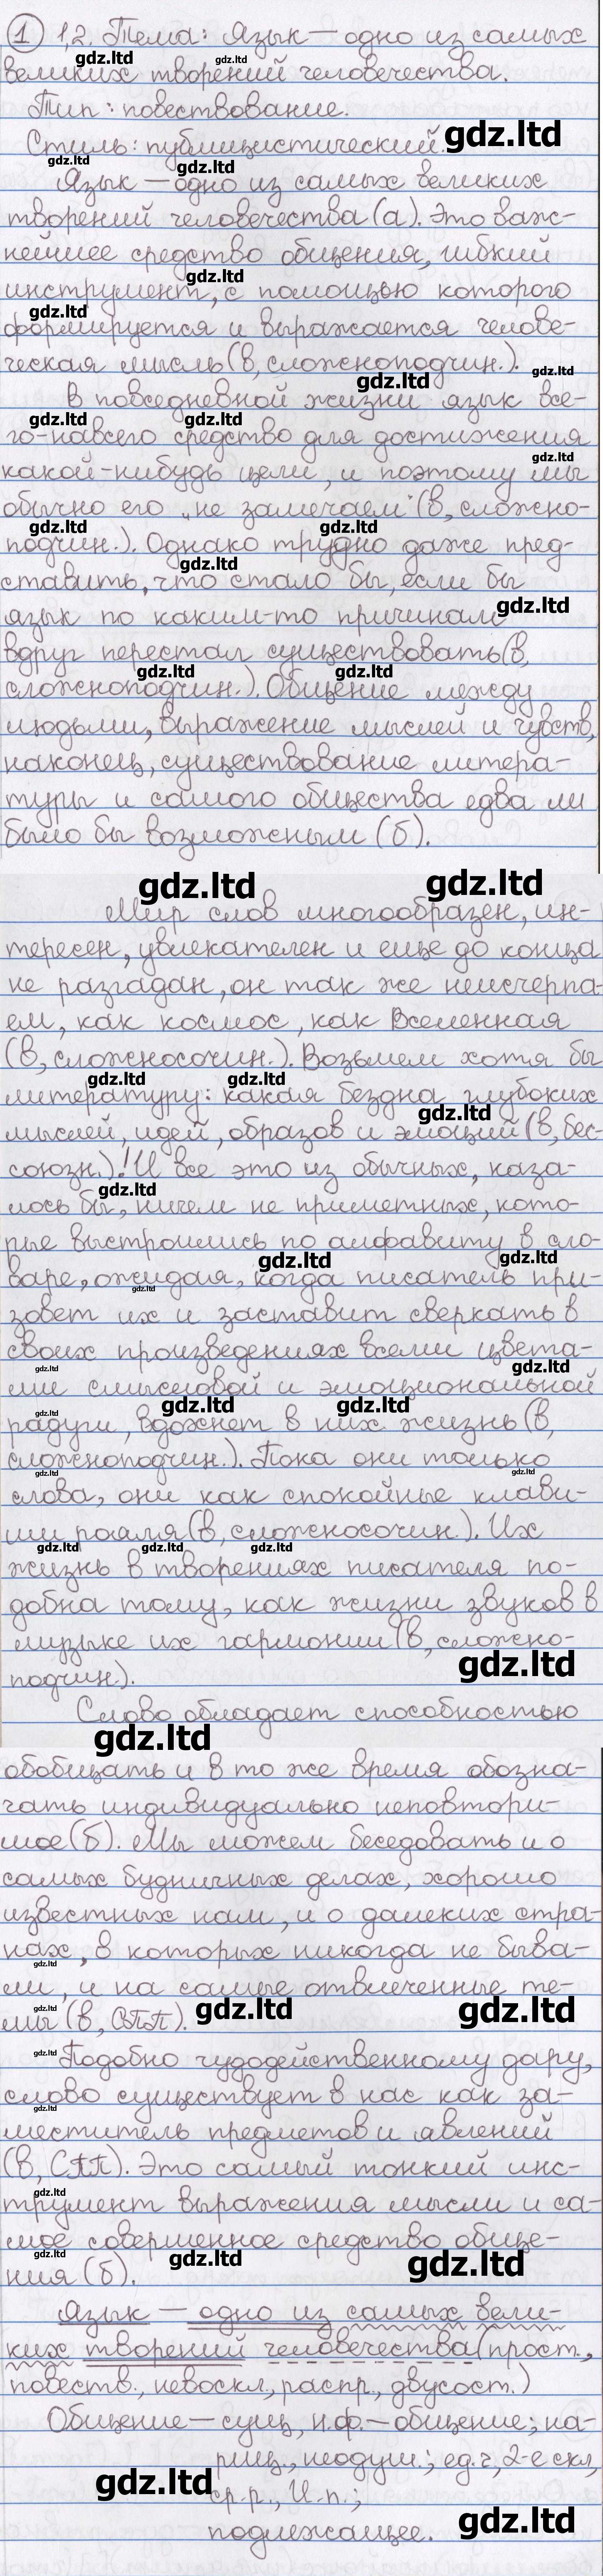 1 1,2. Тема: Язык — одно из самых
великих творений человечества.
Тип: повествование.
Стиль: публицистический.
Язык — одно из самых великих
творений человечества (а). Это важ-
нейшее средство общения, гибкий
инструмент, с помощью которого
формируется и выражается челове-
ческая мысль (в, сложноподчин.).
В повседневной жизни язык все-
го-навсего средство для достижения
какой-нибудь цели, и поэтому мы
обычно его „не замечаем" (в, сложно-
подчин.). Однако трудно даже пред-
ставить, что стало бы, если бы
язык по каким-то причинам
вдруг перестал существовать (в,
сложноподчин.). Общение между
людьми, выражение мыслей и чувств,
наконец, существование литера-
туры и самого общества едва ли
было бы возможным (б).
Мир слов многообразен, ин-
тересен, увлекателен и еще до конца
не разгадан, он так же неисчерпа-
ем, как космос, как Вселенная
(в, сложносочин.). Возьмем хотя бы
литературу: какая бездна глубоких
мыслей, идей, образов и эмоций (в, бес-
союзн.)! И все это из обычных, каза-
лось бы, ничем не приметных, кото-
рые выстроились по алфавиту в сло-
варе, ожидая, когда писатель при-
зовет их и заставит сверкать в
своих произведениях всеми цвета-
ми смысловой и эмоциональной
радуги, вдохнет в них жизнь (в,
сложноподчин.). Пока они только
слова, они как спокойные клави-
ши рояля (в, сложносочин.). Их
жизнь в творениях писателя по-
добна тому, как жизни звуков в
музыке их гармонии (в, сложно-
подчин.).
Слово обладает способностью
обобщать и в то же время обозна-
чать индивидуально неповтори-
мое (б). Мы можем беседовать и о
самых будничных делах, хорошо
известных нам, и о далеких стра-
нах, в которых никогда не быва-
ли, и на самые отвлеченные те-
мы (в, СПП).
Подобно чудодейственному дару,
слово существует в нас как за-
меститель предметов и явлений
(в, СПП). Это самый тонкий инс-
трумент выражения мысли и са-
мое совершенное средство обще-
ния (б).
Язык — одно из самых вели-
ких творений человечества (прост.,
повеств., невоскл., распр., двусост.)
Общение — сущ., н.ф. — общение; на-
риц., неодуш.; ед.ч, 2-е скл,
ср.р., И.п.;
подлежащее.